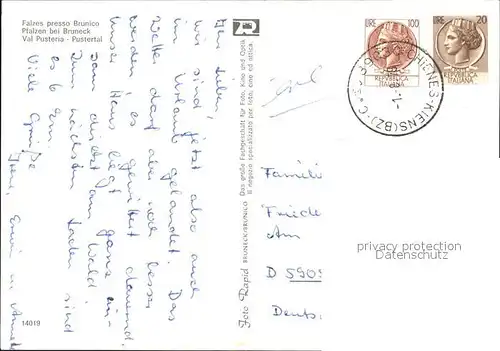 Falzes presso Brunico
Pfalzen bei Bruneck
Val Pusteria - Pustertal
Ihr Lieben,
wir sind jetzt also auch
im Urlaub gelandet. Das
Wetter darf aber noch besser
werden, es gewittert dauernd.
Unser Haus liegt ganz ein-
sam direkt am Wald
zum nächsten Laden sind
es 6 km.
Viele Grüße
Erwin u.
14019
Foto Rapid BRUNECK/BRUNICO
Das große Fachgeschäft für Foto, Kino und Optik
Il negozio specializzato per foto, cine ed ottica.
R
LIRE 100
REPUBBLICA
ITALIANA
LIRE 20
REPUBBLICA
ITALIANA
CHIENES-KIENS(BZ)
Familie
Friede
Am
D 5909
Deuts
privacy protection
Datenschutz